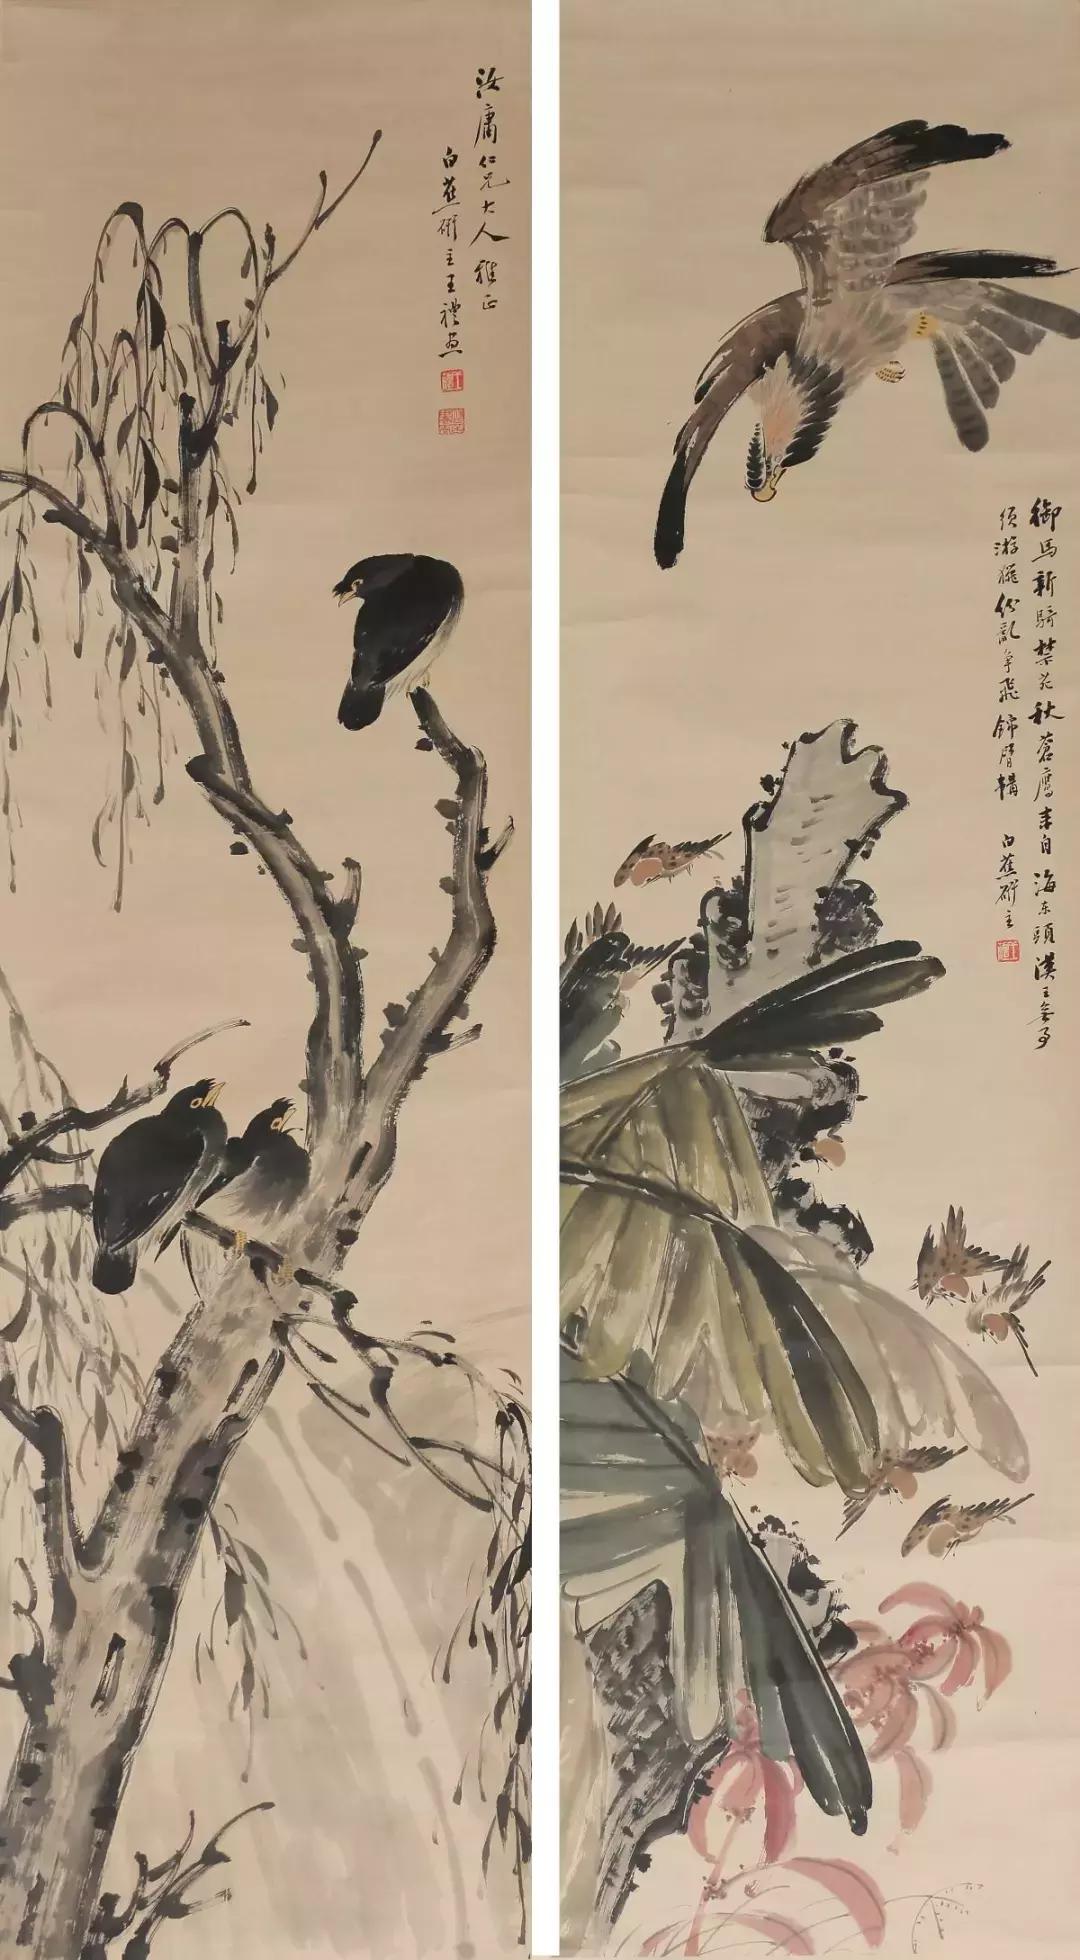 御馬新騎禁苑秋蒼鷹來自海东頭漢王無事
須游獵代亂爭飛錦臂韝 白蕉研主
汝庸仁兄大人雅正
白蕉研主王禮畫